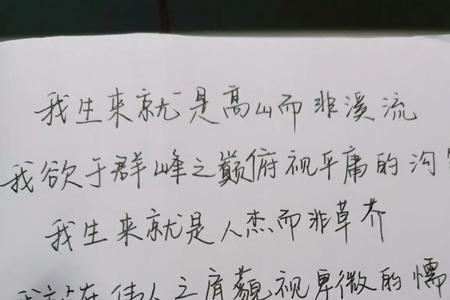 我生来就是高山而非溪流
我欲于群峰之巅俯视平庸的沟
我生来就是人杰而非草芥
我站在伟人之肩藐视卑微的懦